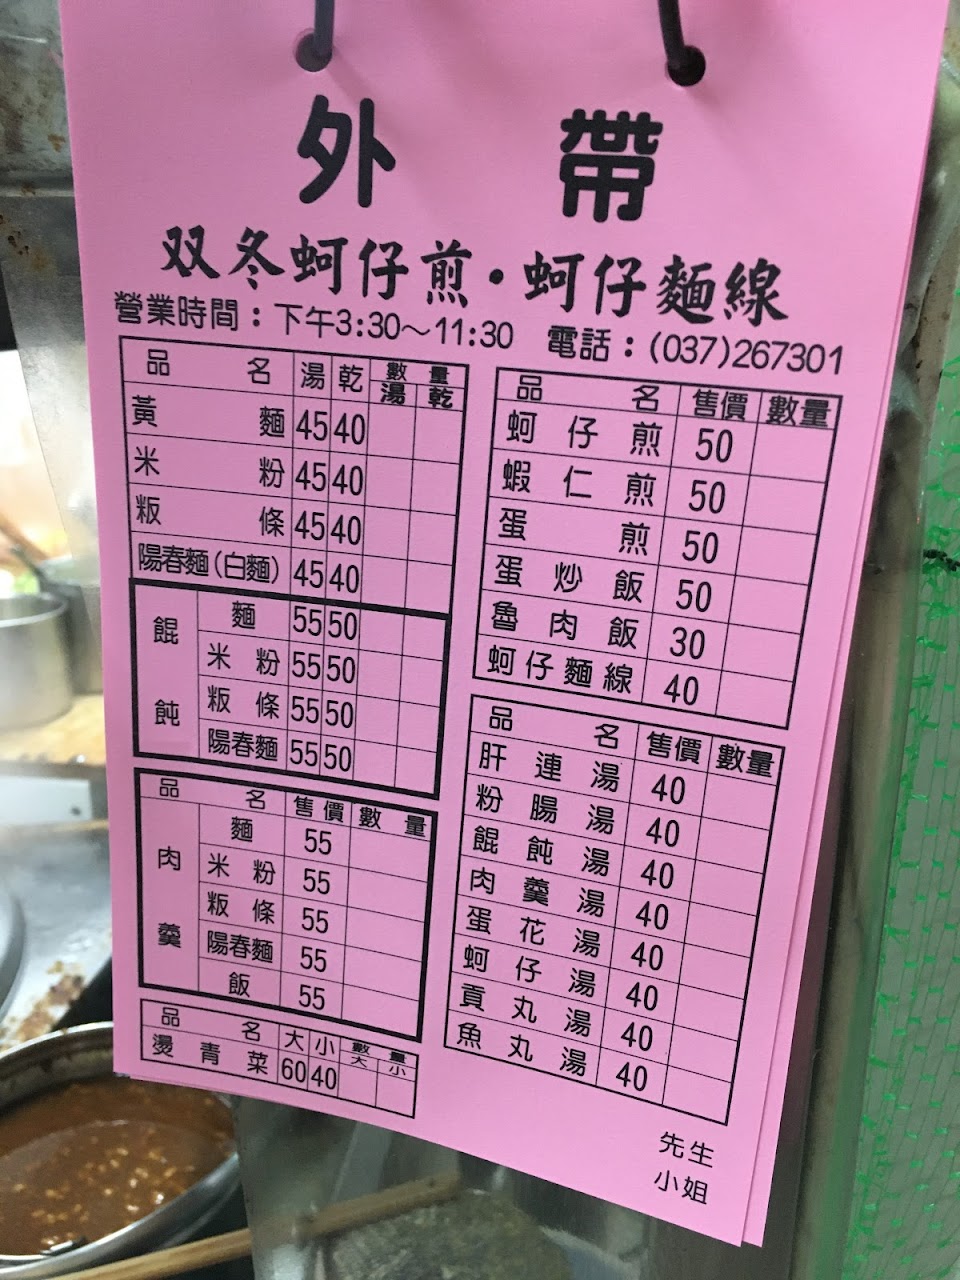 外帶
双冬蚵仔煎·蚵仔麵線
營業時間：下午3:30～11:30 電話：(037)267301
品名 湯 乾 數量
湯 乾
黃麵 45 40
米粉 45 40
粄條 45 40
陽春麵(白麵) 45 40
餛飩
麵 55 50
米粉 55 50
粄條 55 50
陽春麵 55 50
品名 售價 數量
肉羹
麵 55
米粉 55
粄條 55
陽春麵 55
飯 55
品名 大 小 數量
大 小
燙青菜 60 40
品名 售價 數量
蚵仔煎 50
蝦仁煎 50
蛋煎 50
蛋炒飯 50
魯肉飯 30
蚵仔麵線 40
品名 售價 數量
肝連湯 40
粉腸湯 40
餛飩湯 40
肉羹湯 40
蛋花湯 40
蚵仔湯 40
貢丸湯 40
魚丸湯 40
先生
小姐